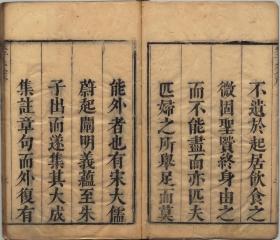 不遺於起居飲食之
微固聖賢終身由之
而不能盡而亦匹夫
匹婦之所舉足而莫
能外者也有宋大儒
蔚起闡明義蘊至朱
子出而遂集其大成
集註章句而外復有